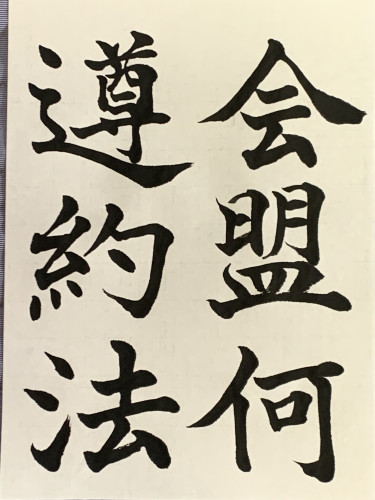 会盟何
遵約法